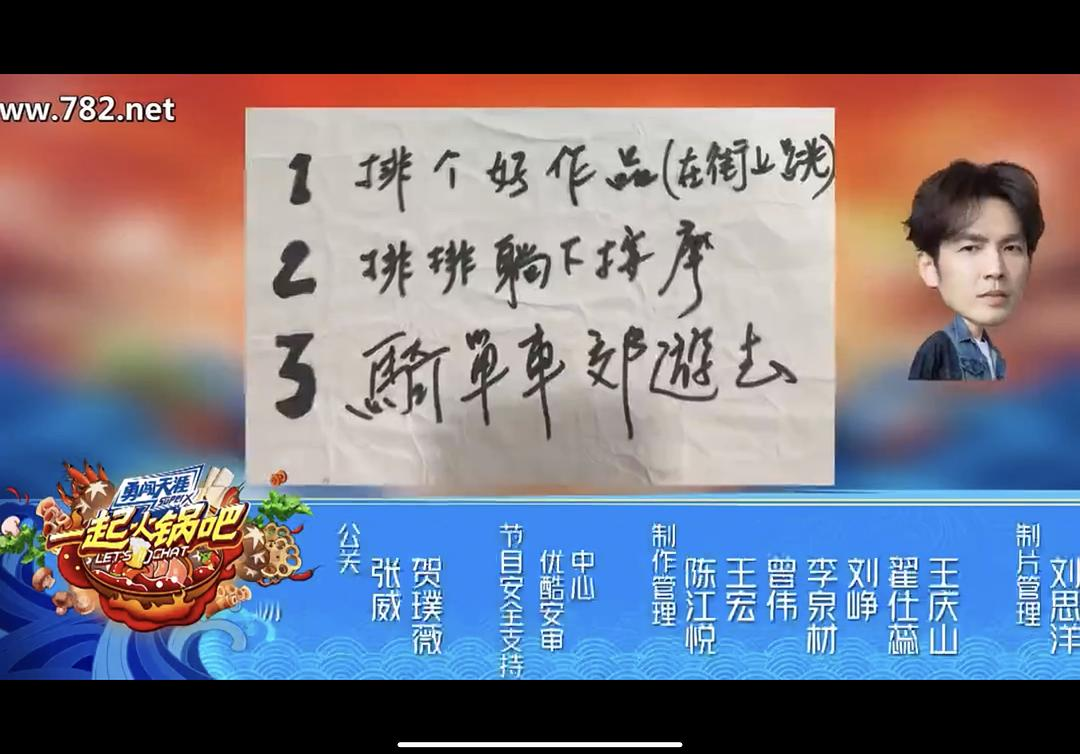 www.782.net
1 排个好作品(在街上跳)
2 排排躺下按摩
3 騎單車郊遊去
勇闯天涯
SUPERX
一起火锅吧
LET'S CHAT
公关
张威
贺璞薇
节目安全支持
优酷安审
中心
制作管理
陈江悦
王宏
曾伟
李泉材
刘峥
翟仕蕊
王庆山
制片管理
刘思洋